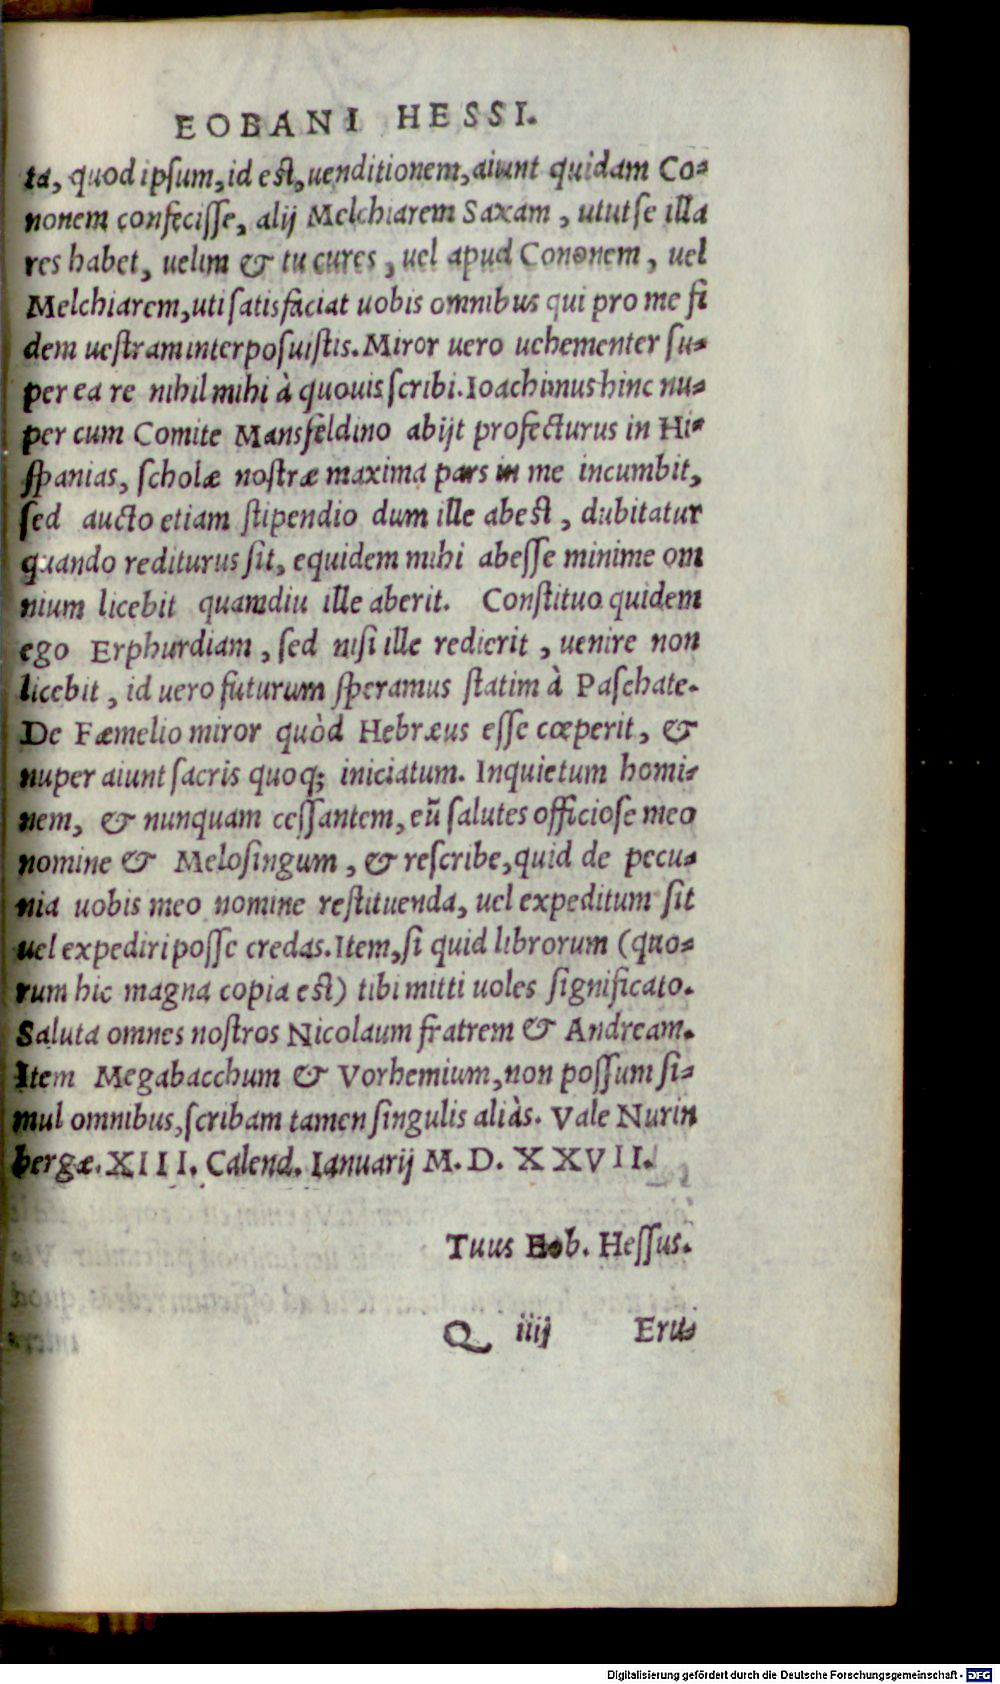 EOBANI HESSI.
ta, quod ipsum, id est, uenditionem, aiunt quidam Co-
nonem confecisse, alij Melchiarem Saxam, utut se illa
res habet, uelim & tu cures, uel apud Cononem, uel
Melchiarem, uti satisfaciat uobis omnibus qui pro me fi
dem uestram interposuistis. Miror uero uehementer su-
per ea re nihil mihi à quouis scribi. Ioachimus hinc nu-
per cum Comite Mansfeldino abijt profecturus in Hi-
spanias, scholæ nostræ maxima pars in me incumbit,
sed aucto etiam stipendio dum ille abest, dubitatur
quando rediturus sit, equidem mihi abesse minime om
nium licebit quamdiu ille aberit. Constituo quidem
ego Erphurdiam, sed nisi ille redierit, uenire non
licebit, id uero futurum speramus statim à Paschate.
De Fæmelio miror quòd Hebræus esse cœperit, &
nuper aiunt sacris quoq; iniciatum. Inquietum homi-
nem, & nunquam cessantem, eũ salutes officiose meo
nomine & Melosingum, & rescribe, quid de pecu-
nia uobis meo nomine restituenda, uel expeditum sit
uel expediri posse credas. Item, si quid librorum (quo-
rum hic magna copia est) tibi mitti uoles significato.
Saluta omnes nostros Nicolaum fratrem & Andream.
Item Megabacchum & Vorhemium, non possum si-
mul omnibus, scribam tamen singulis aliàs. Vale Nurin
bergæ. XIII. Calend. Ianuarij M. D. XXVII.
Tuus Eob. Hessus.
Q iiij Eru-
Digitalisierung gefördert durch die Deutsche Forschungsgemeinschaft - DFG